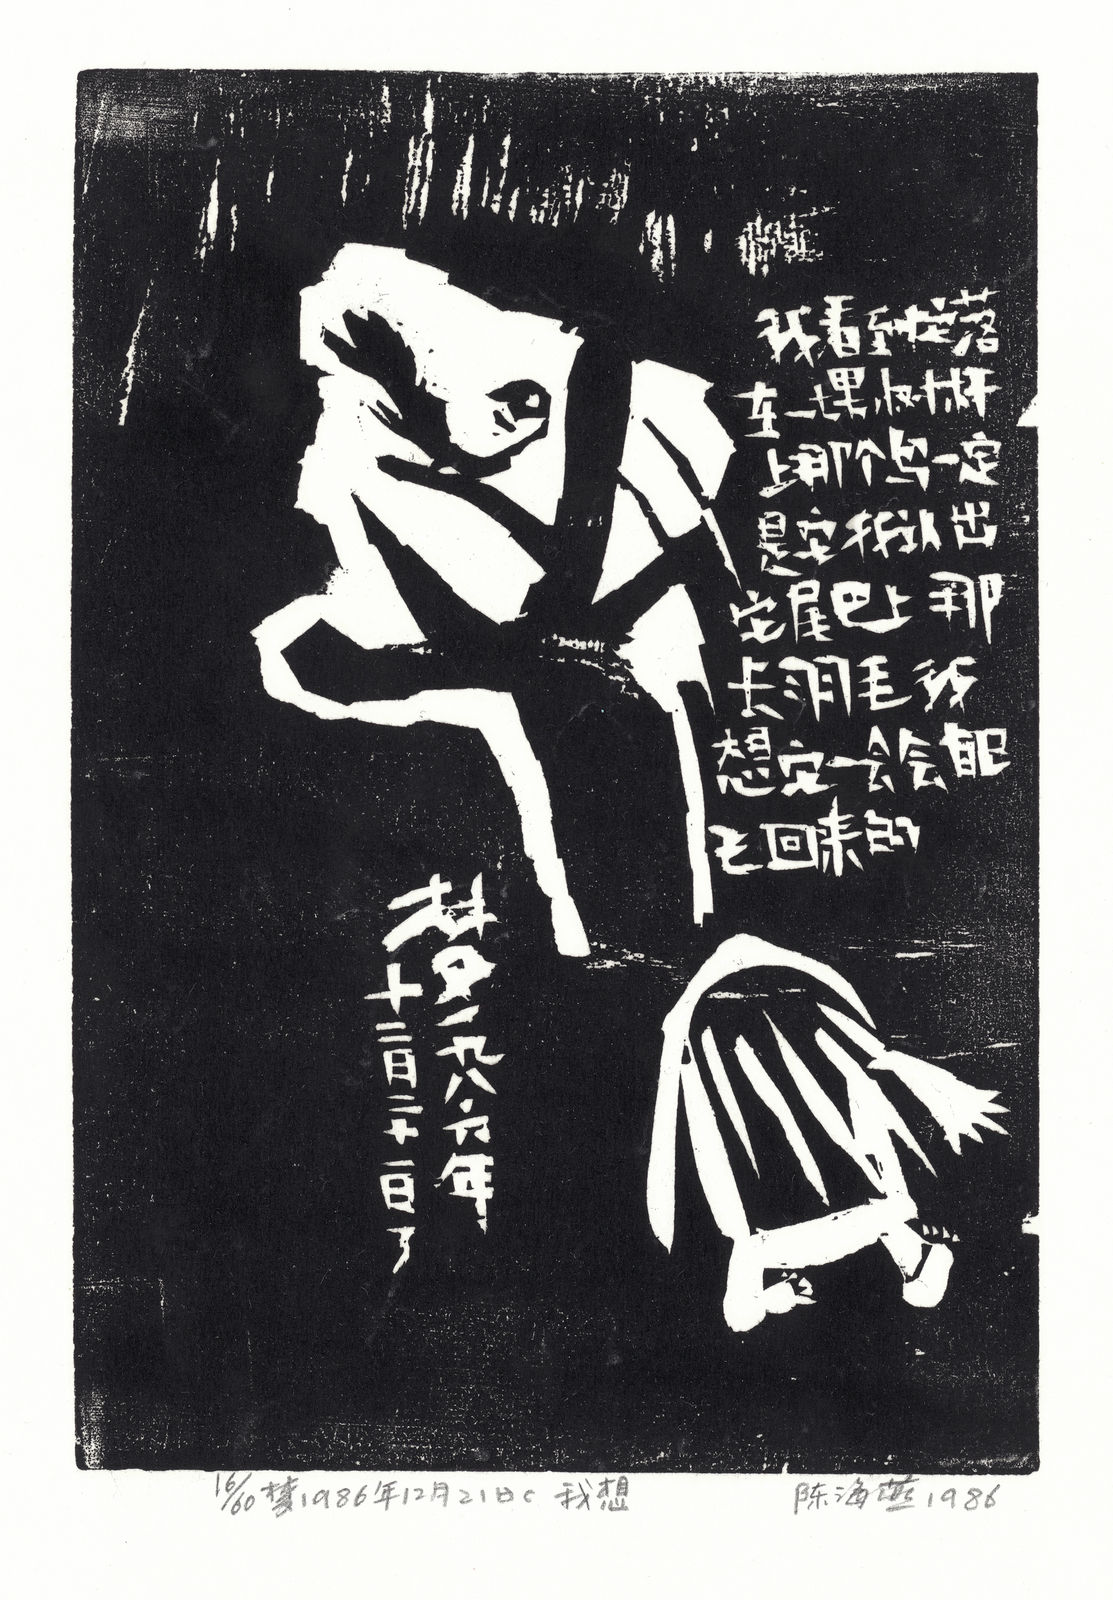 我看到落
在一棵树杆
上那个鸟一定
是它我认出
它尾巴上那
长羽毛我
想它一会会能
飞回来的
梦一九八六年
十二月二十一日
16/60 梦1986年12月21日c 我想 陈海燕1986